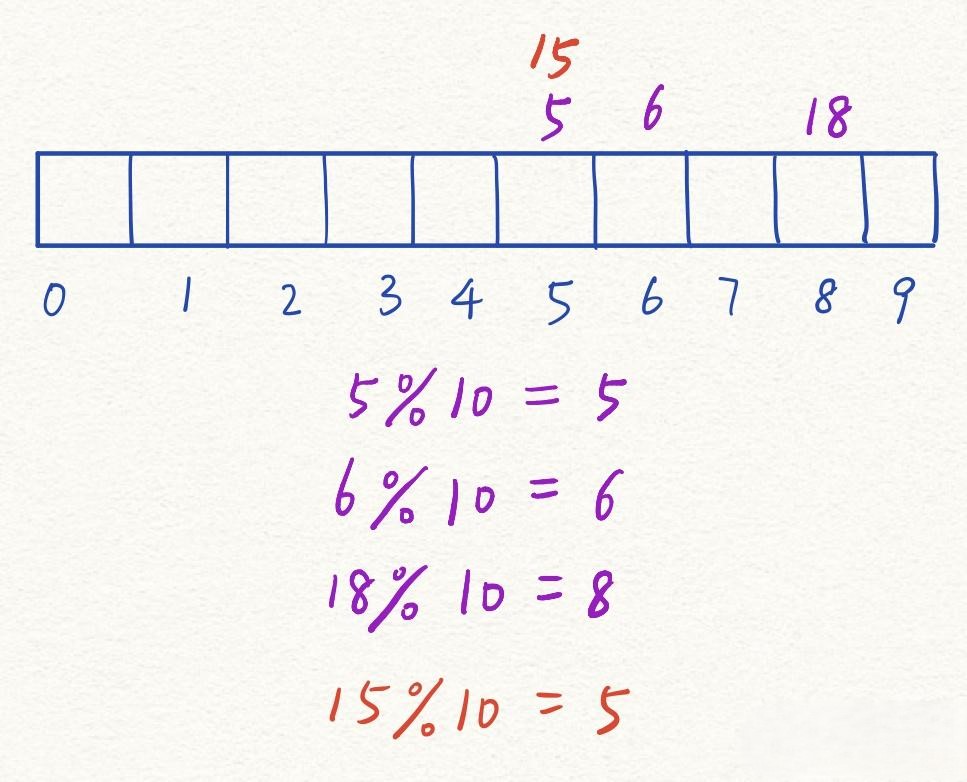 15
5 6 18
0 1 2 3 4 5 6 7 8 9
5 % 10 = 5
6 % 10 = 6
18 % 10 = 8
15 % 10 = 5